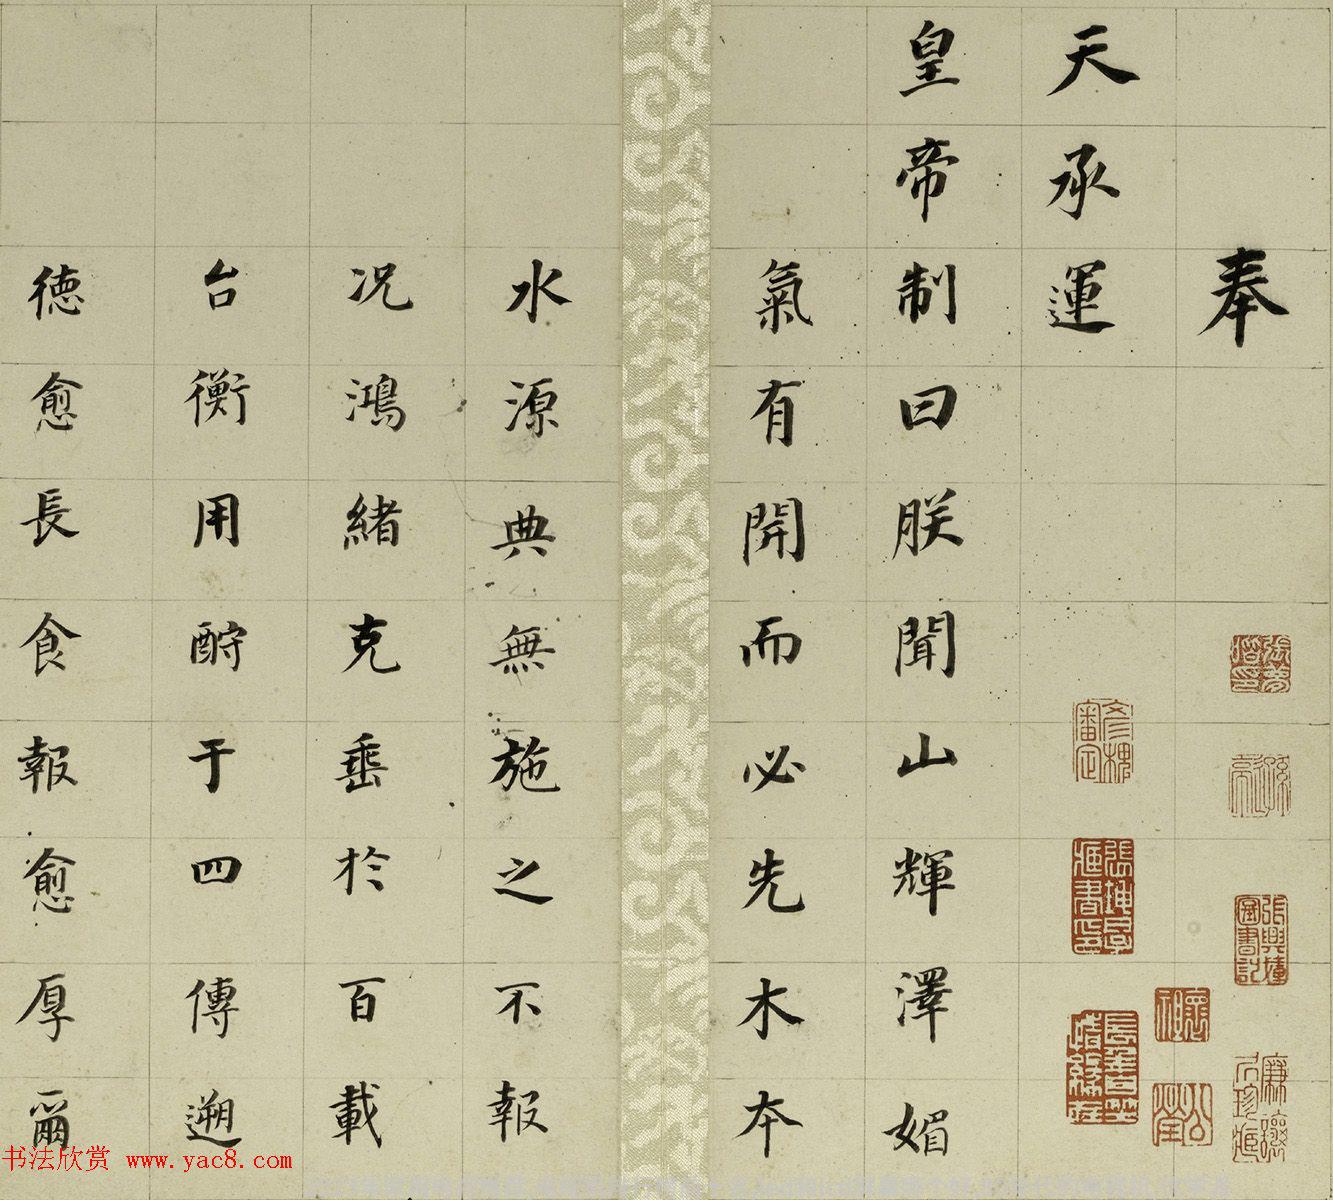 奉
天承運
皇帝制曰朕聞山輝澤媚
氣有開而必先木本
水源典無施之不報
况鴻緒克垂於百載
台衡用酧于四傳遡
德愈長食報愈厚爾
书法欣赏 www.yac8.com